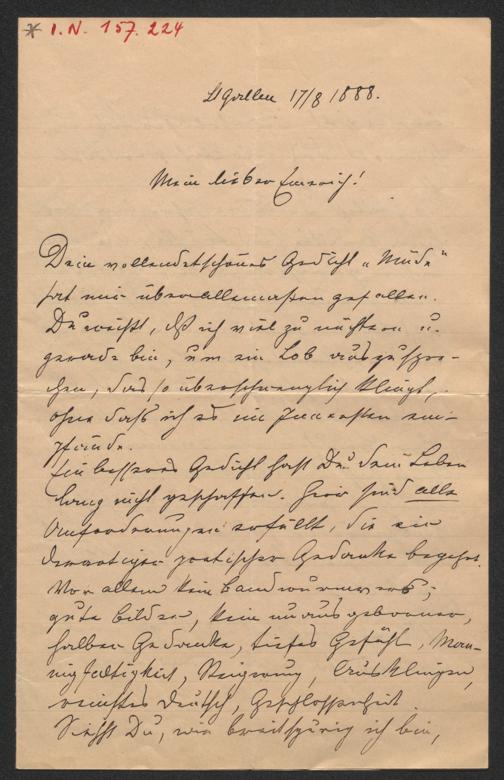 * I.N. 157.224
St Gallen 17/8 1888.
Mein lieber Emerich!
Dein vollendetschönes Gedicht „Müde"
hat mir überallemaßen gefallen.
Du weißt, daß ich viel zu nüchtern u.
gerade bin, um ein Lob auszuspre-
chen, das so überschwenglich klingt,
ohne daß ich es im Innersten em-
pfände.
Ein besseres Gedicht hast Du dein Leben
lang nicht geschaffen. Hier sind alle
Anforderungen erfüllt, die ein
derartiger poetischer Gedanke begehrt.
Vor allem kein Bandwurmvers;
gute Bilder, kein unausgeborener,
halber Gedanke, tiefes Gefühl, Man-
nigfaltigkeit, Steigerung, Ausklingen,
reinstes Deutsch, Geschlossenheit.
Siehst Du, wie breitspurig ich bin,